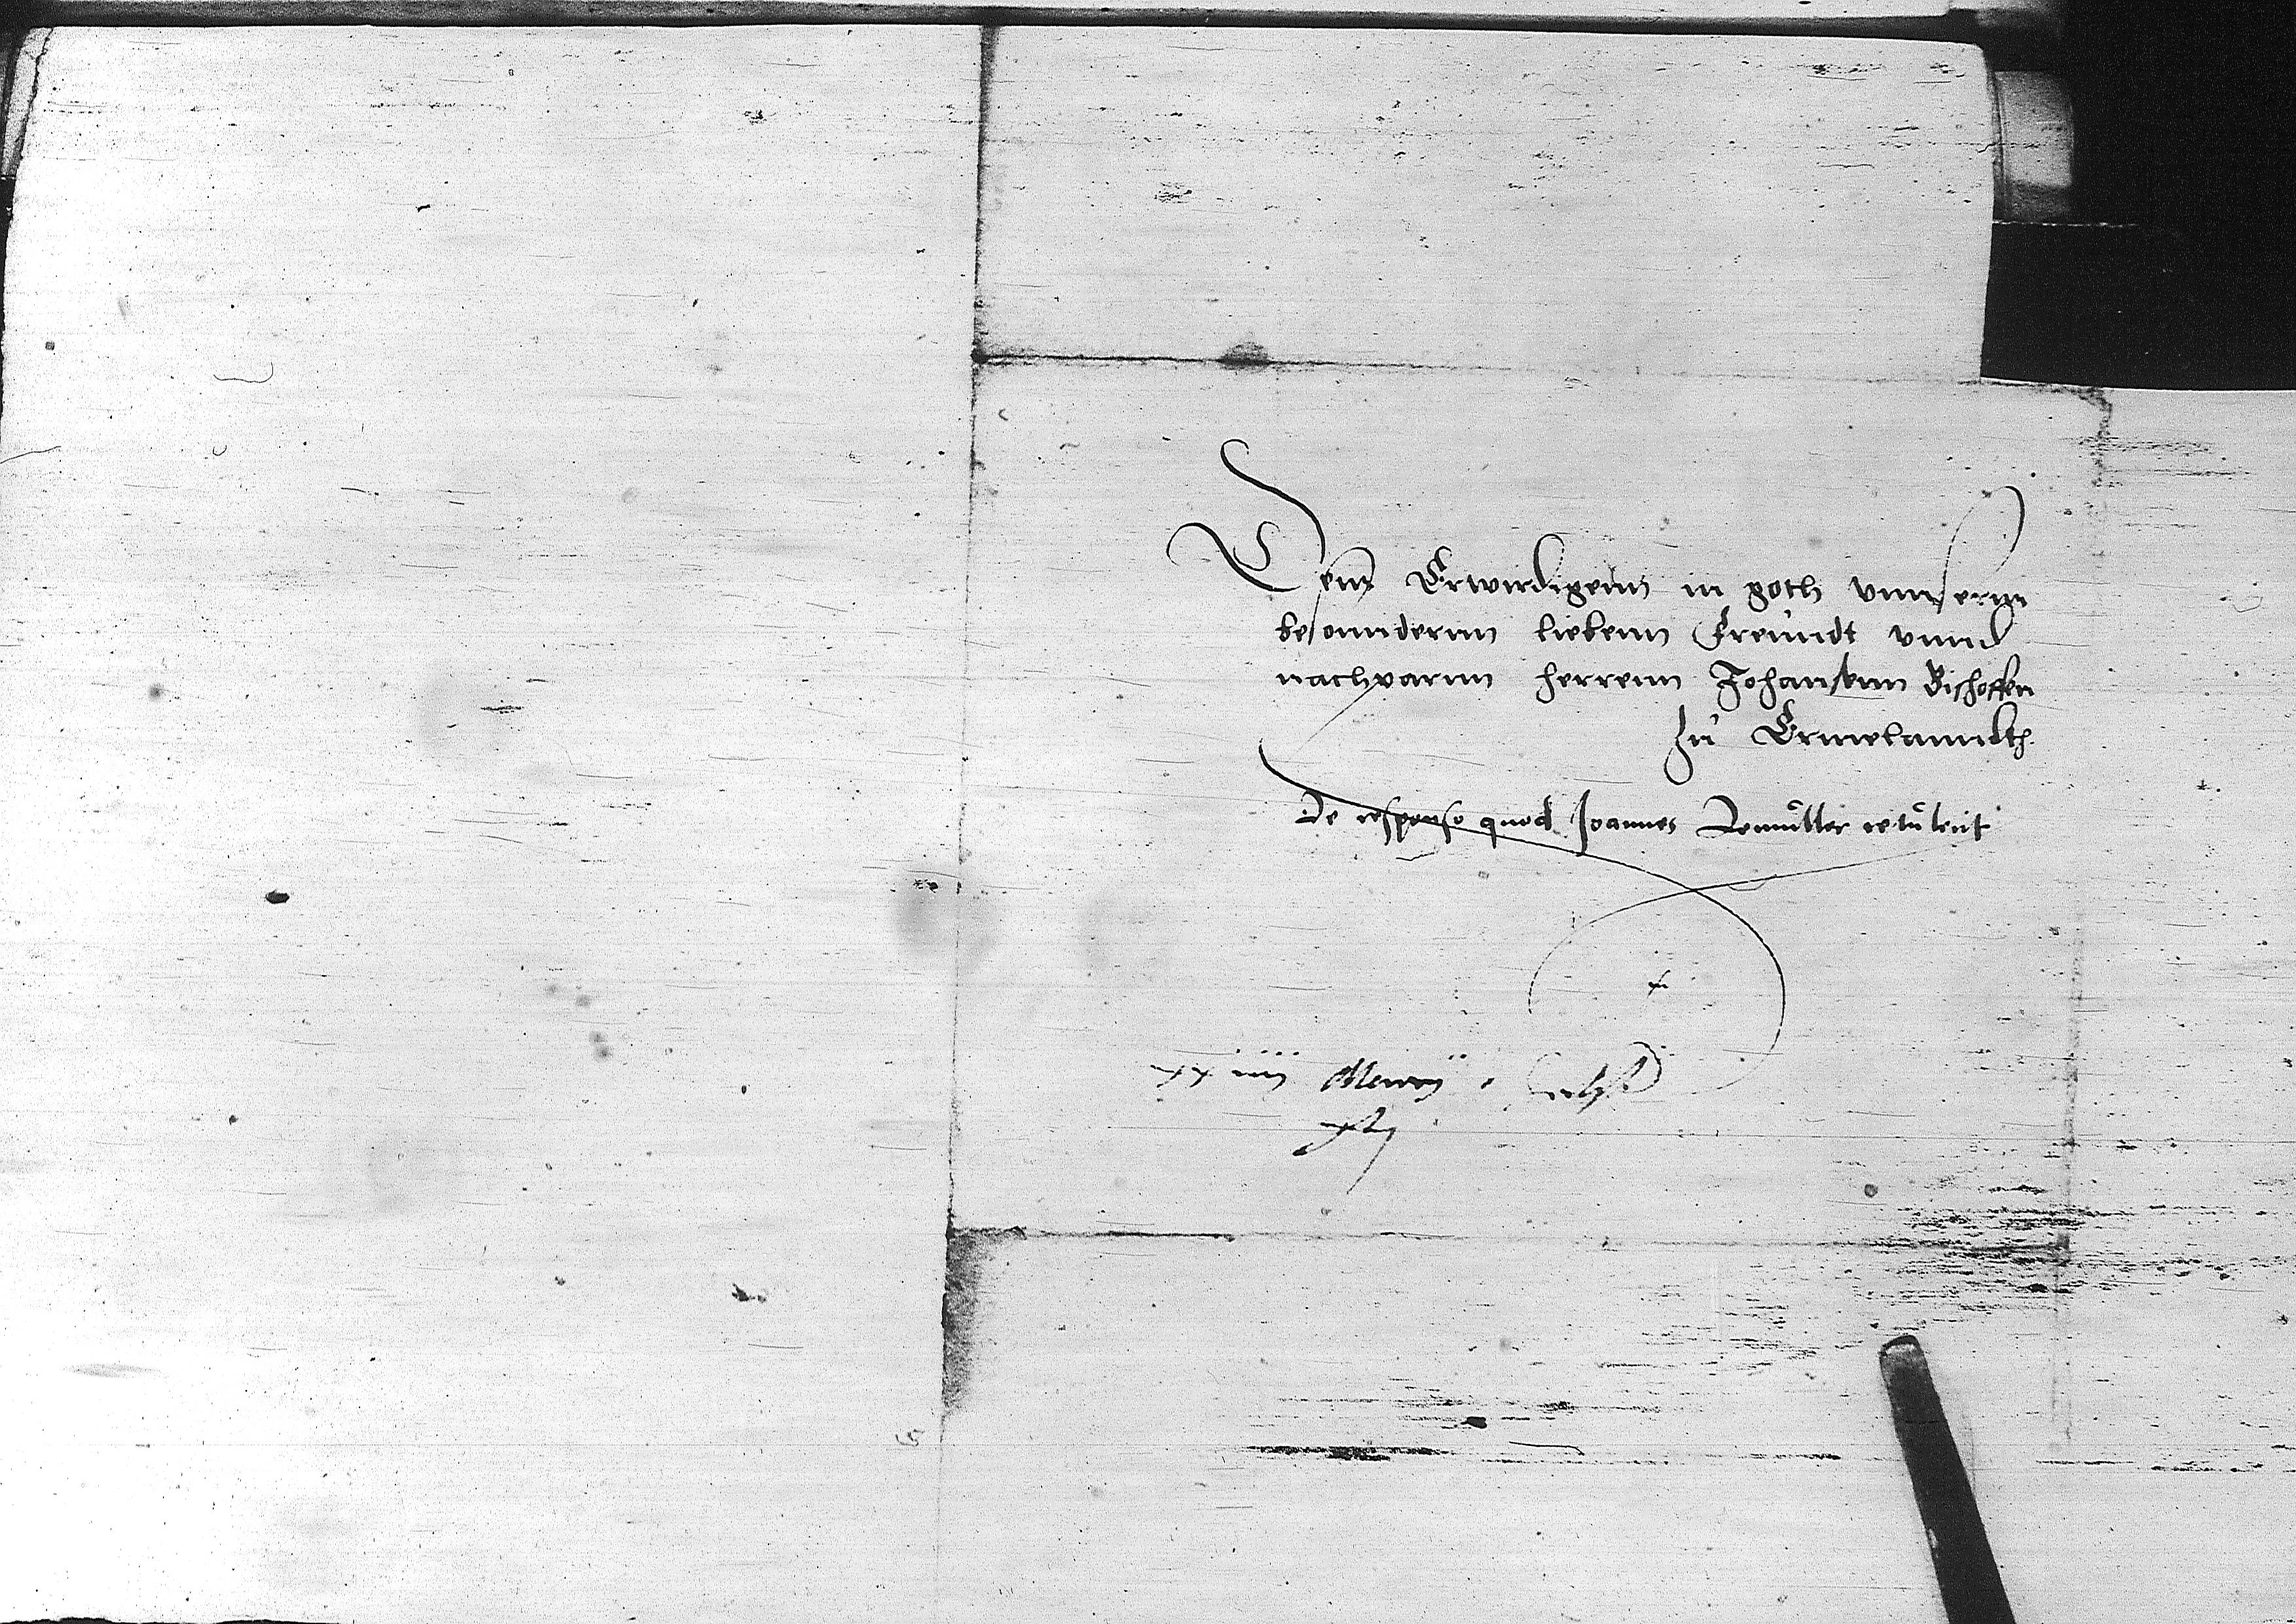 Dem Erwirdigenn in goth vnnserm
besonndernn liebenn Freundt vnnd
nachparnn herrenn Johansenn Bischoffen
zu Ermelanndth
De responso quod Joannes Zemüller retulerit
xxiiii